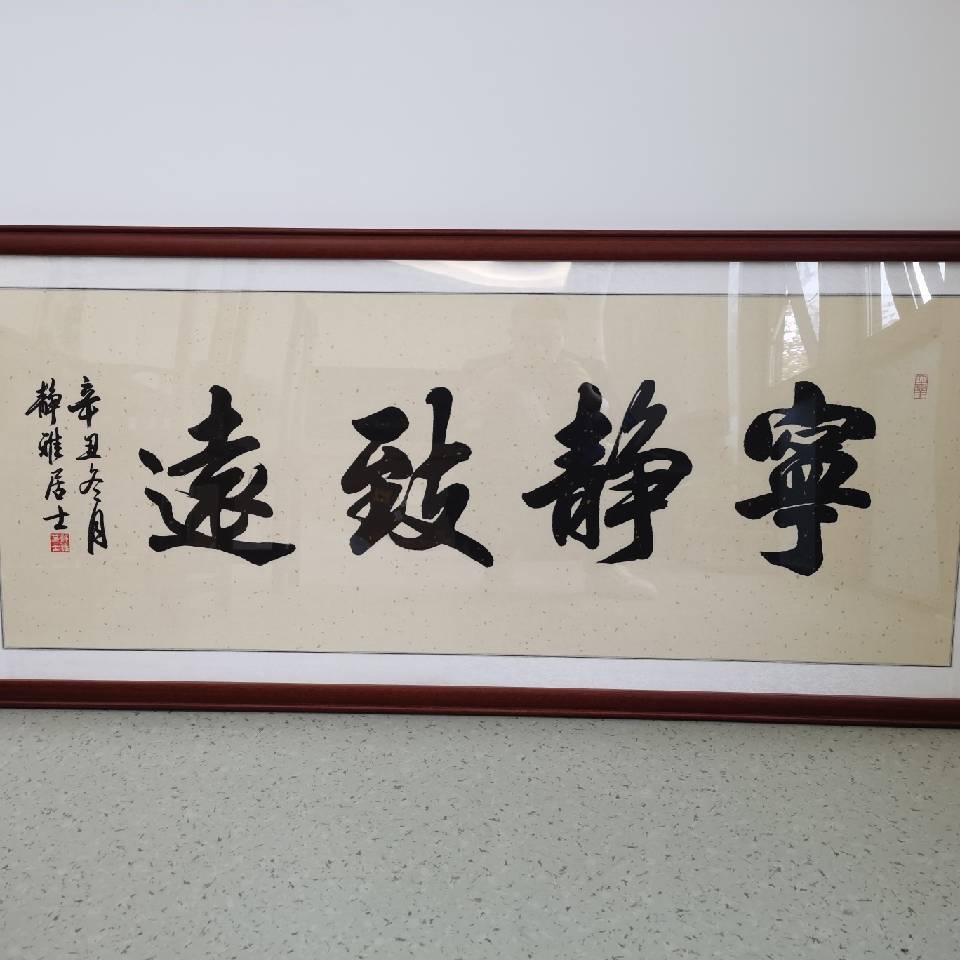 寧静致遠
辛丑冬月
静雅居士